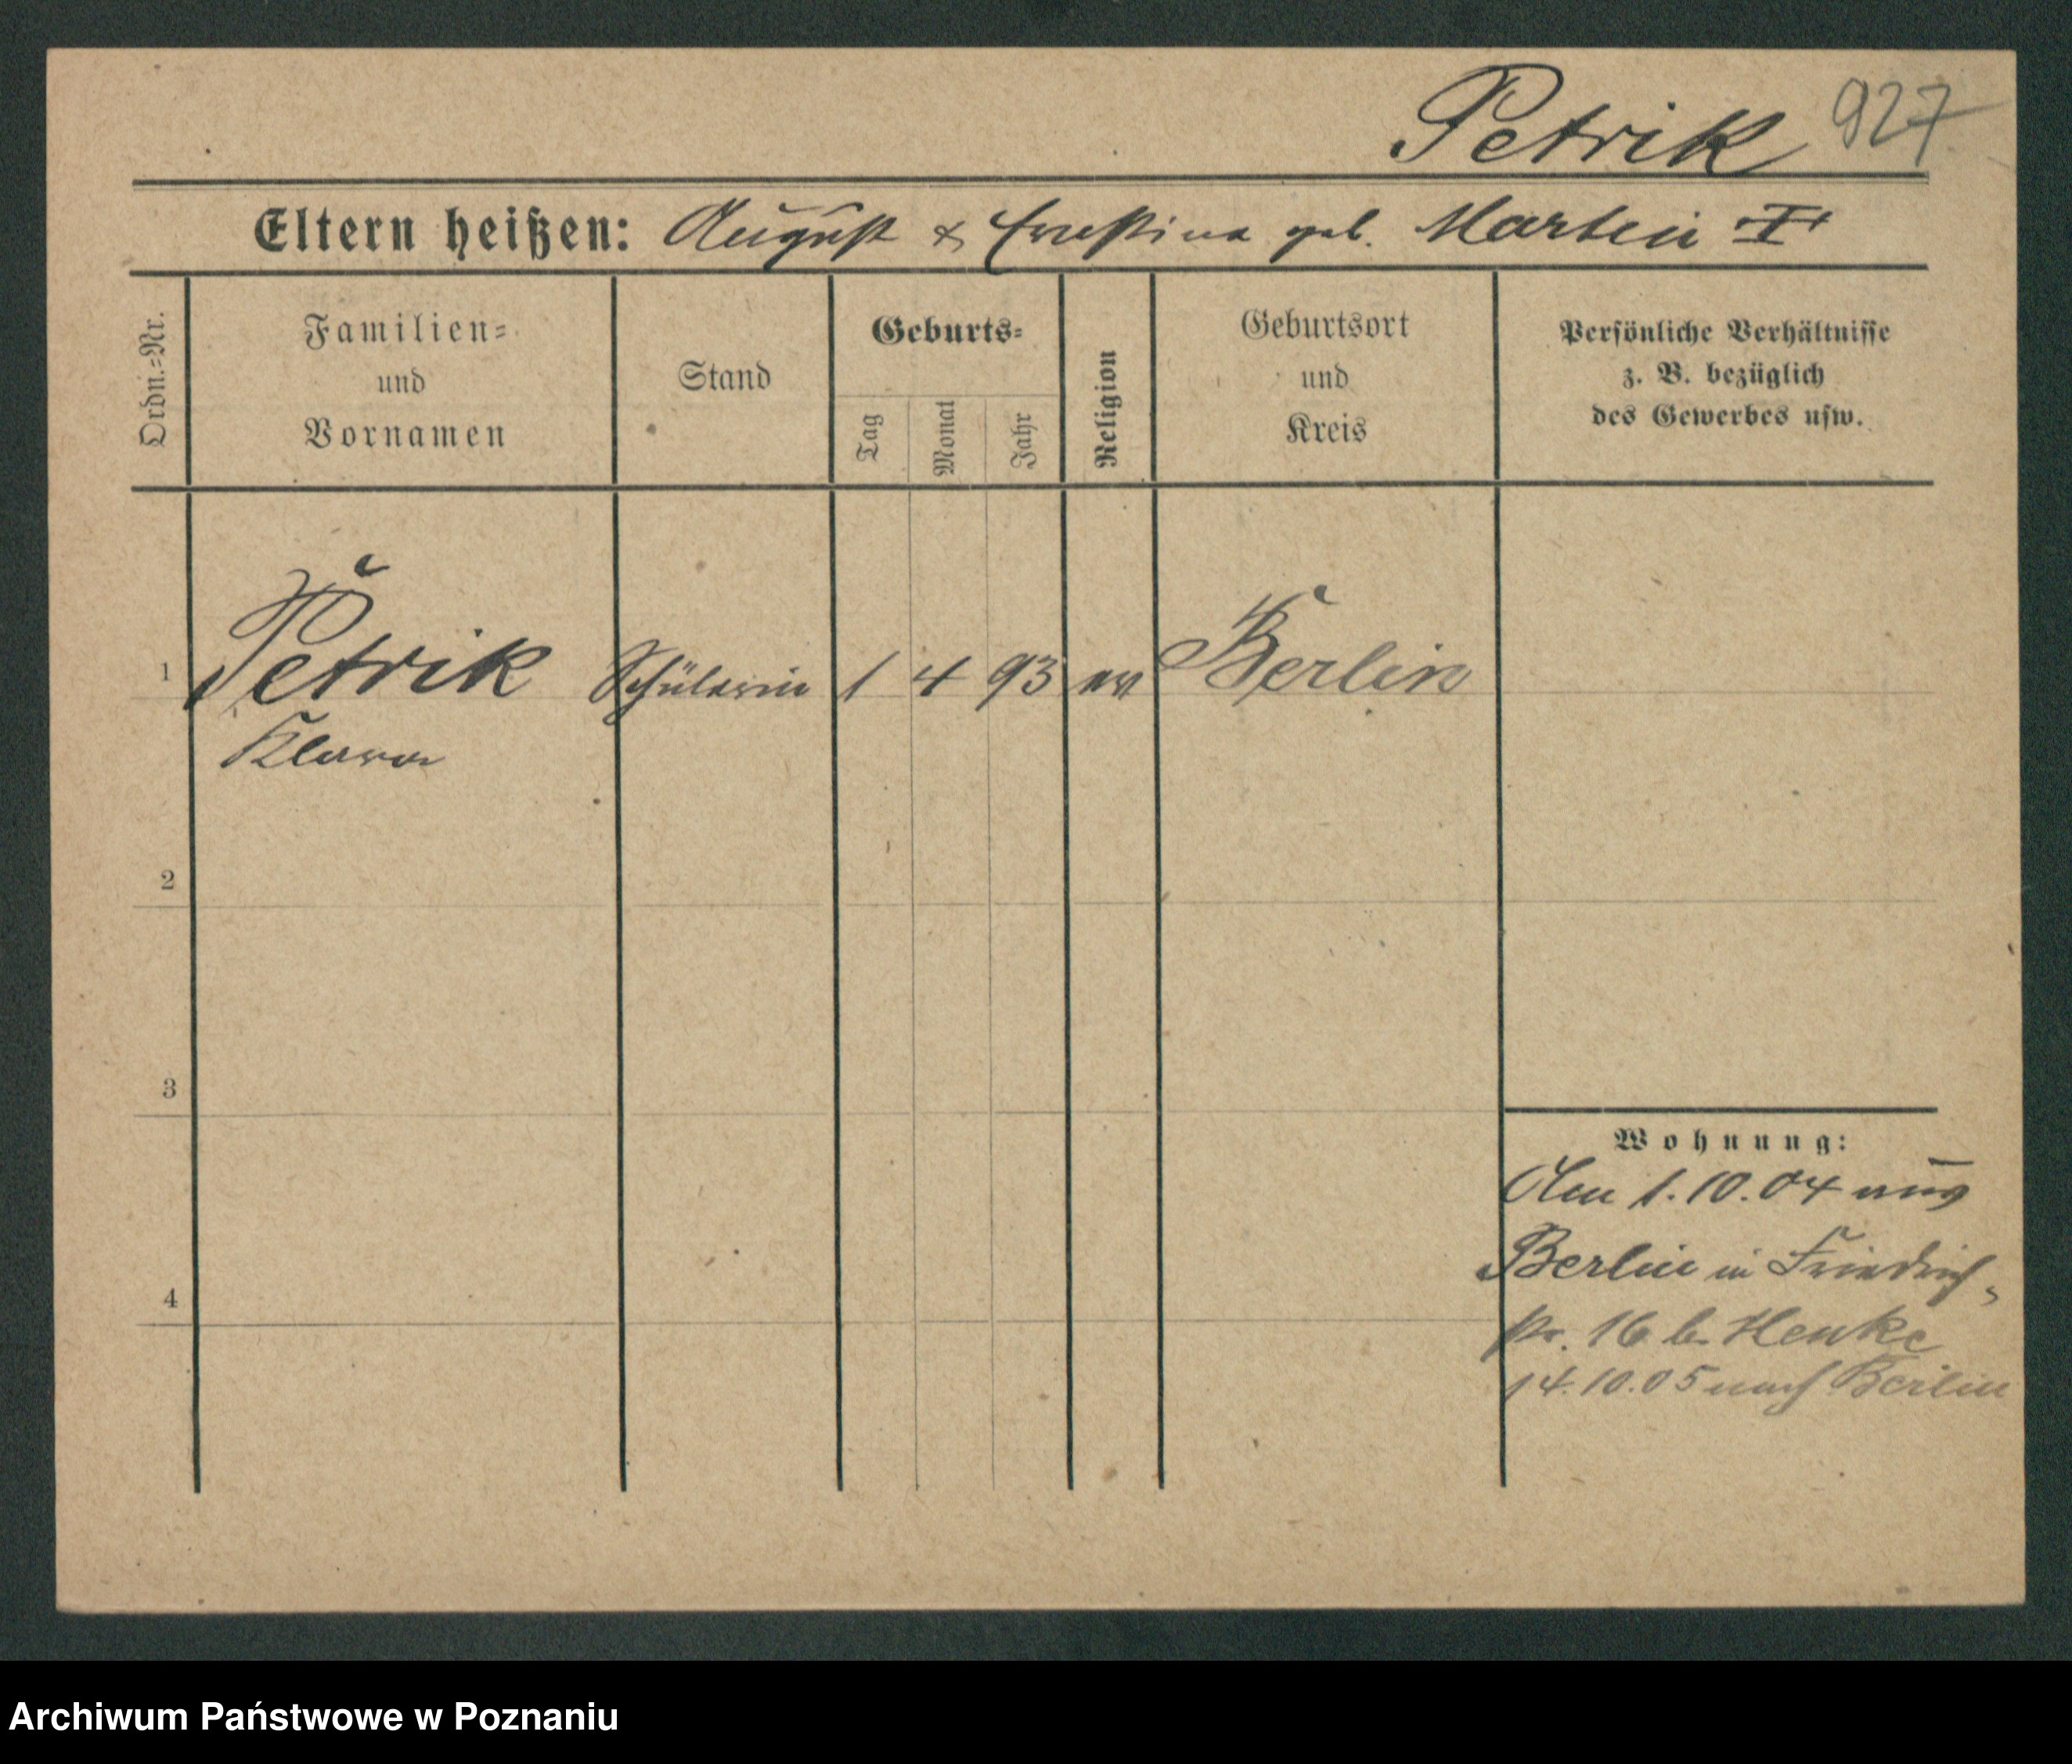 Petrik 927
Eltern heißen: August & Ernestine geb. Martin
Ordn.=Nr.
Familien=
und
Vornamen
Stand
Geburts=
Tag
Monat
Jahr
Religion
Geburtsort
und
Kreis
Persönliche Verhältnisse
z. B. bezüglich
des Gewerbes usw.
1 Petrik Schülerin 1 4 93 ev Berlin
Klara
2
3
4
Wohnung:
Am 1.10.04 aus
Berlin in Friedrich=
str. 16 b. Henke
14.10.05 nach Berlin
Archiwum Państwowe w Poznaniu